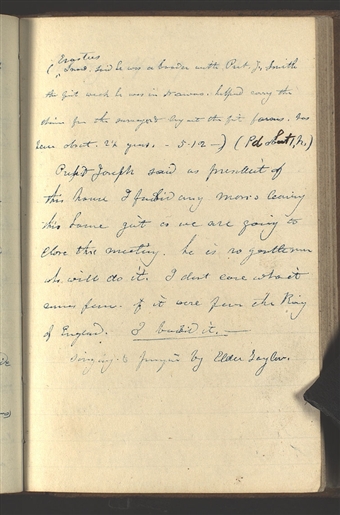 Erastus
( Snow. said he was a boarder with Prest. J. Smith
the first week he was in Nauvoo. helped carry the
chain for the surveyor lay out the first
been about. 22 years. - 5-12 -)
Prest Joseph said as president of
this house I forbid any man's leaving
this house just as we are going to
close this meeting. he is no gentleman
who will do it. I dont care who it
comes from. if it were from the King
of England. I forbid it. —
Singing. & prayer by Elder Taylor.